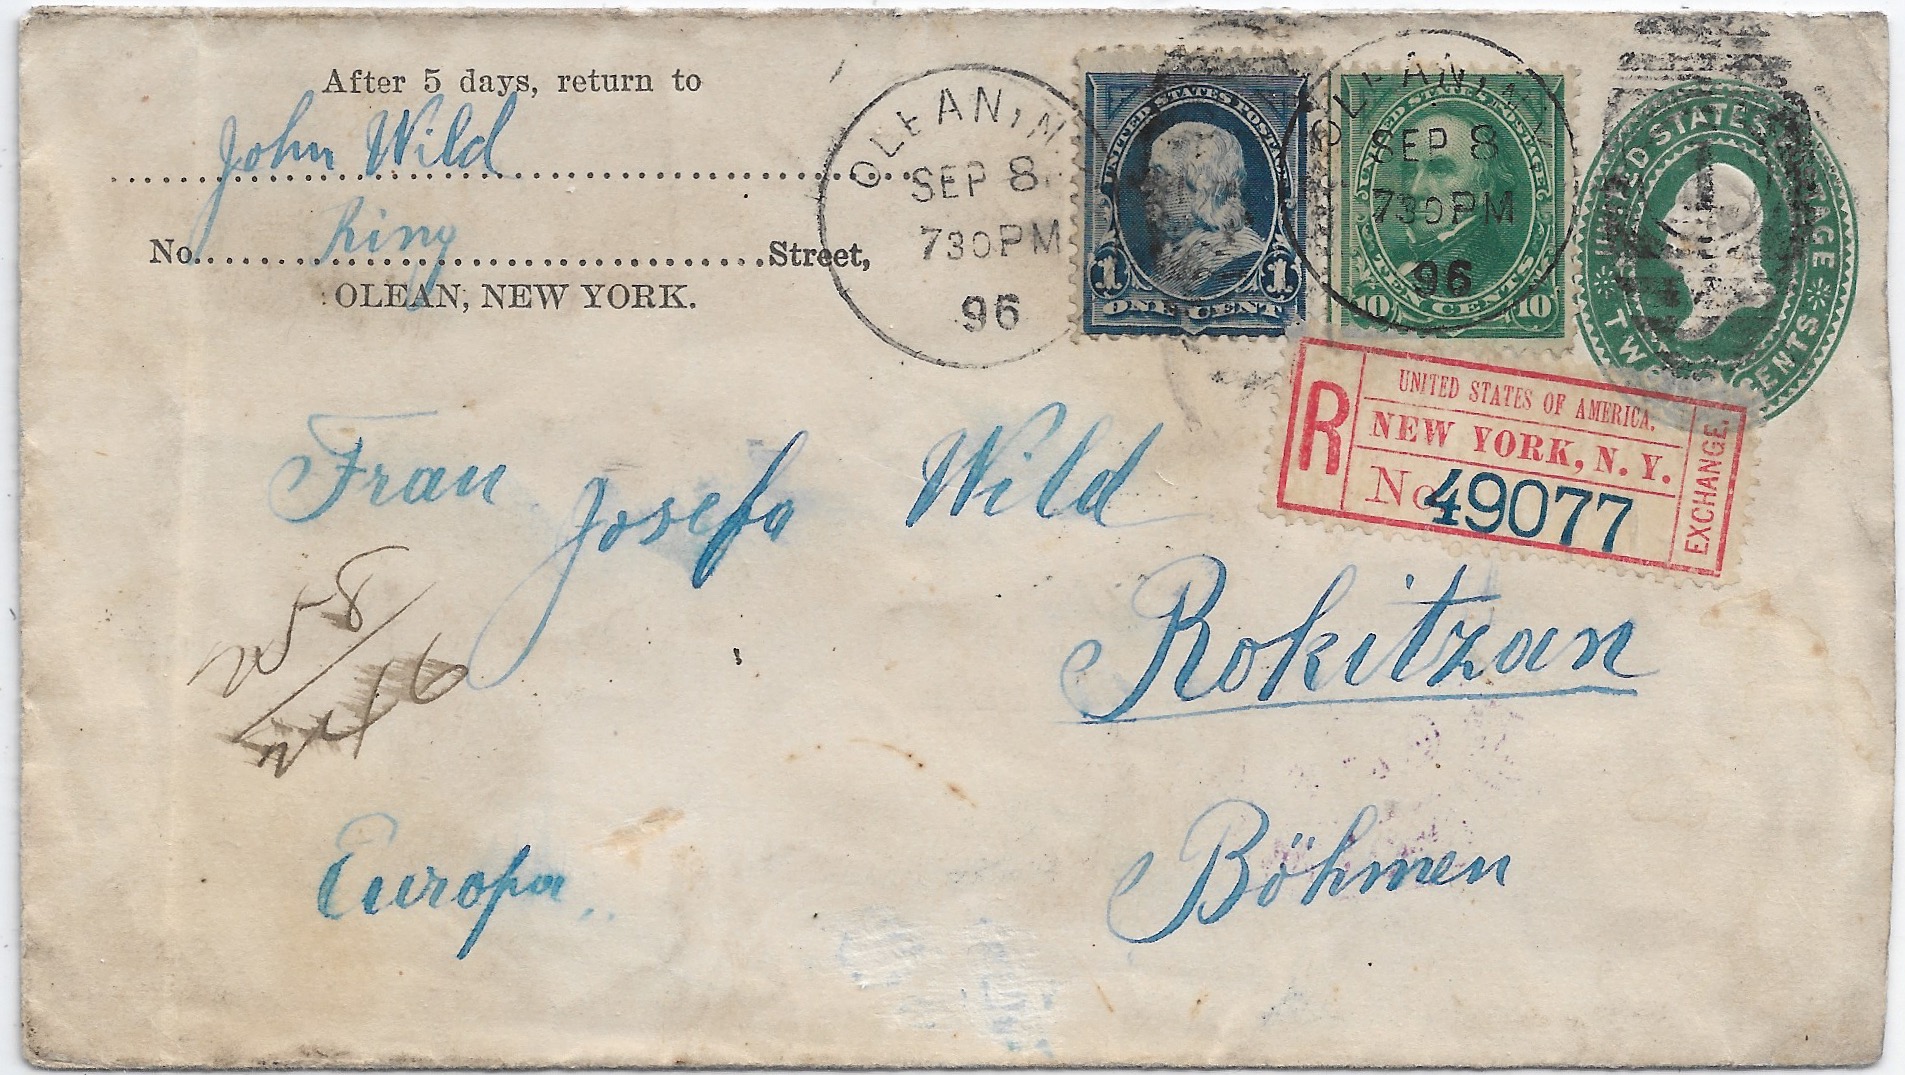 After 5 days, return to
John Wild
No. King Street,
OLEAN, NEW YORK.
OLEAN, N.
SEP 8
730PM
96
UNITED STATES POSTAGE
1 1
ONE CENT
OLEAN, N.Y.
SEP 8
730PM
96
UNITED STATES POSTAGE
10 TEN CENTS 10
UNITED STATES POSTAGE
TWO CENTS
R
UNITED STATES OF AMERICA.
NEW YORK, N. Y.
No 49077
EXCHANGE.
Frau Josefa Wild
Rokitzan
Europa
Böhmen